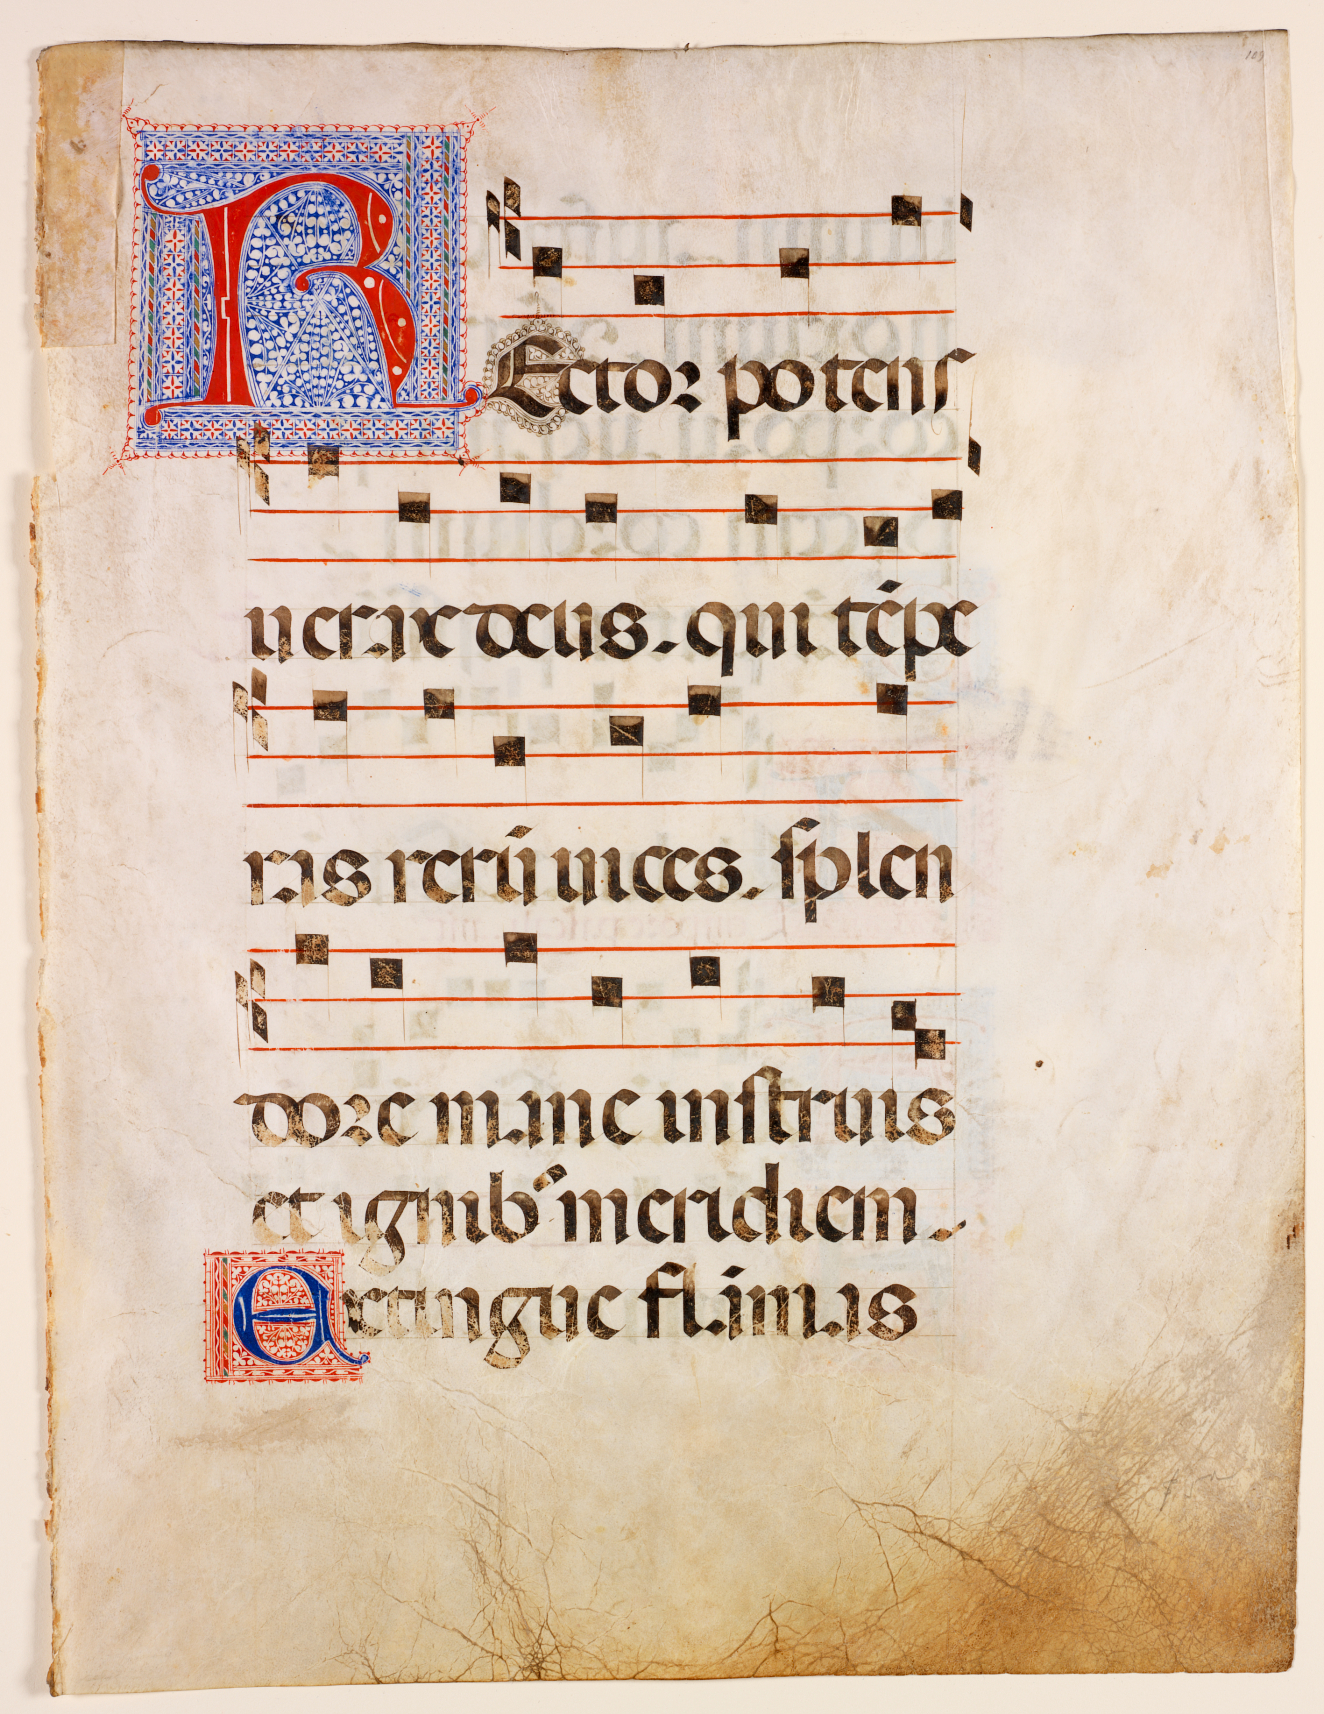 109
REctor potens
uerax deus. qui tēpe
ras rerū uices. splen
dore mane instruis
et ignib᾽ meridiem.
Extingue flāmas